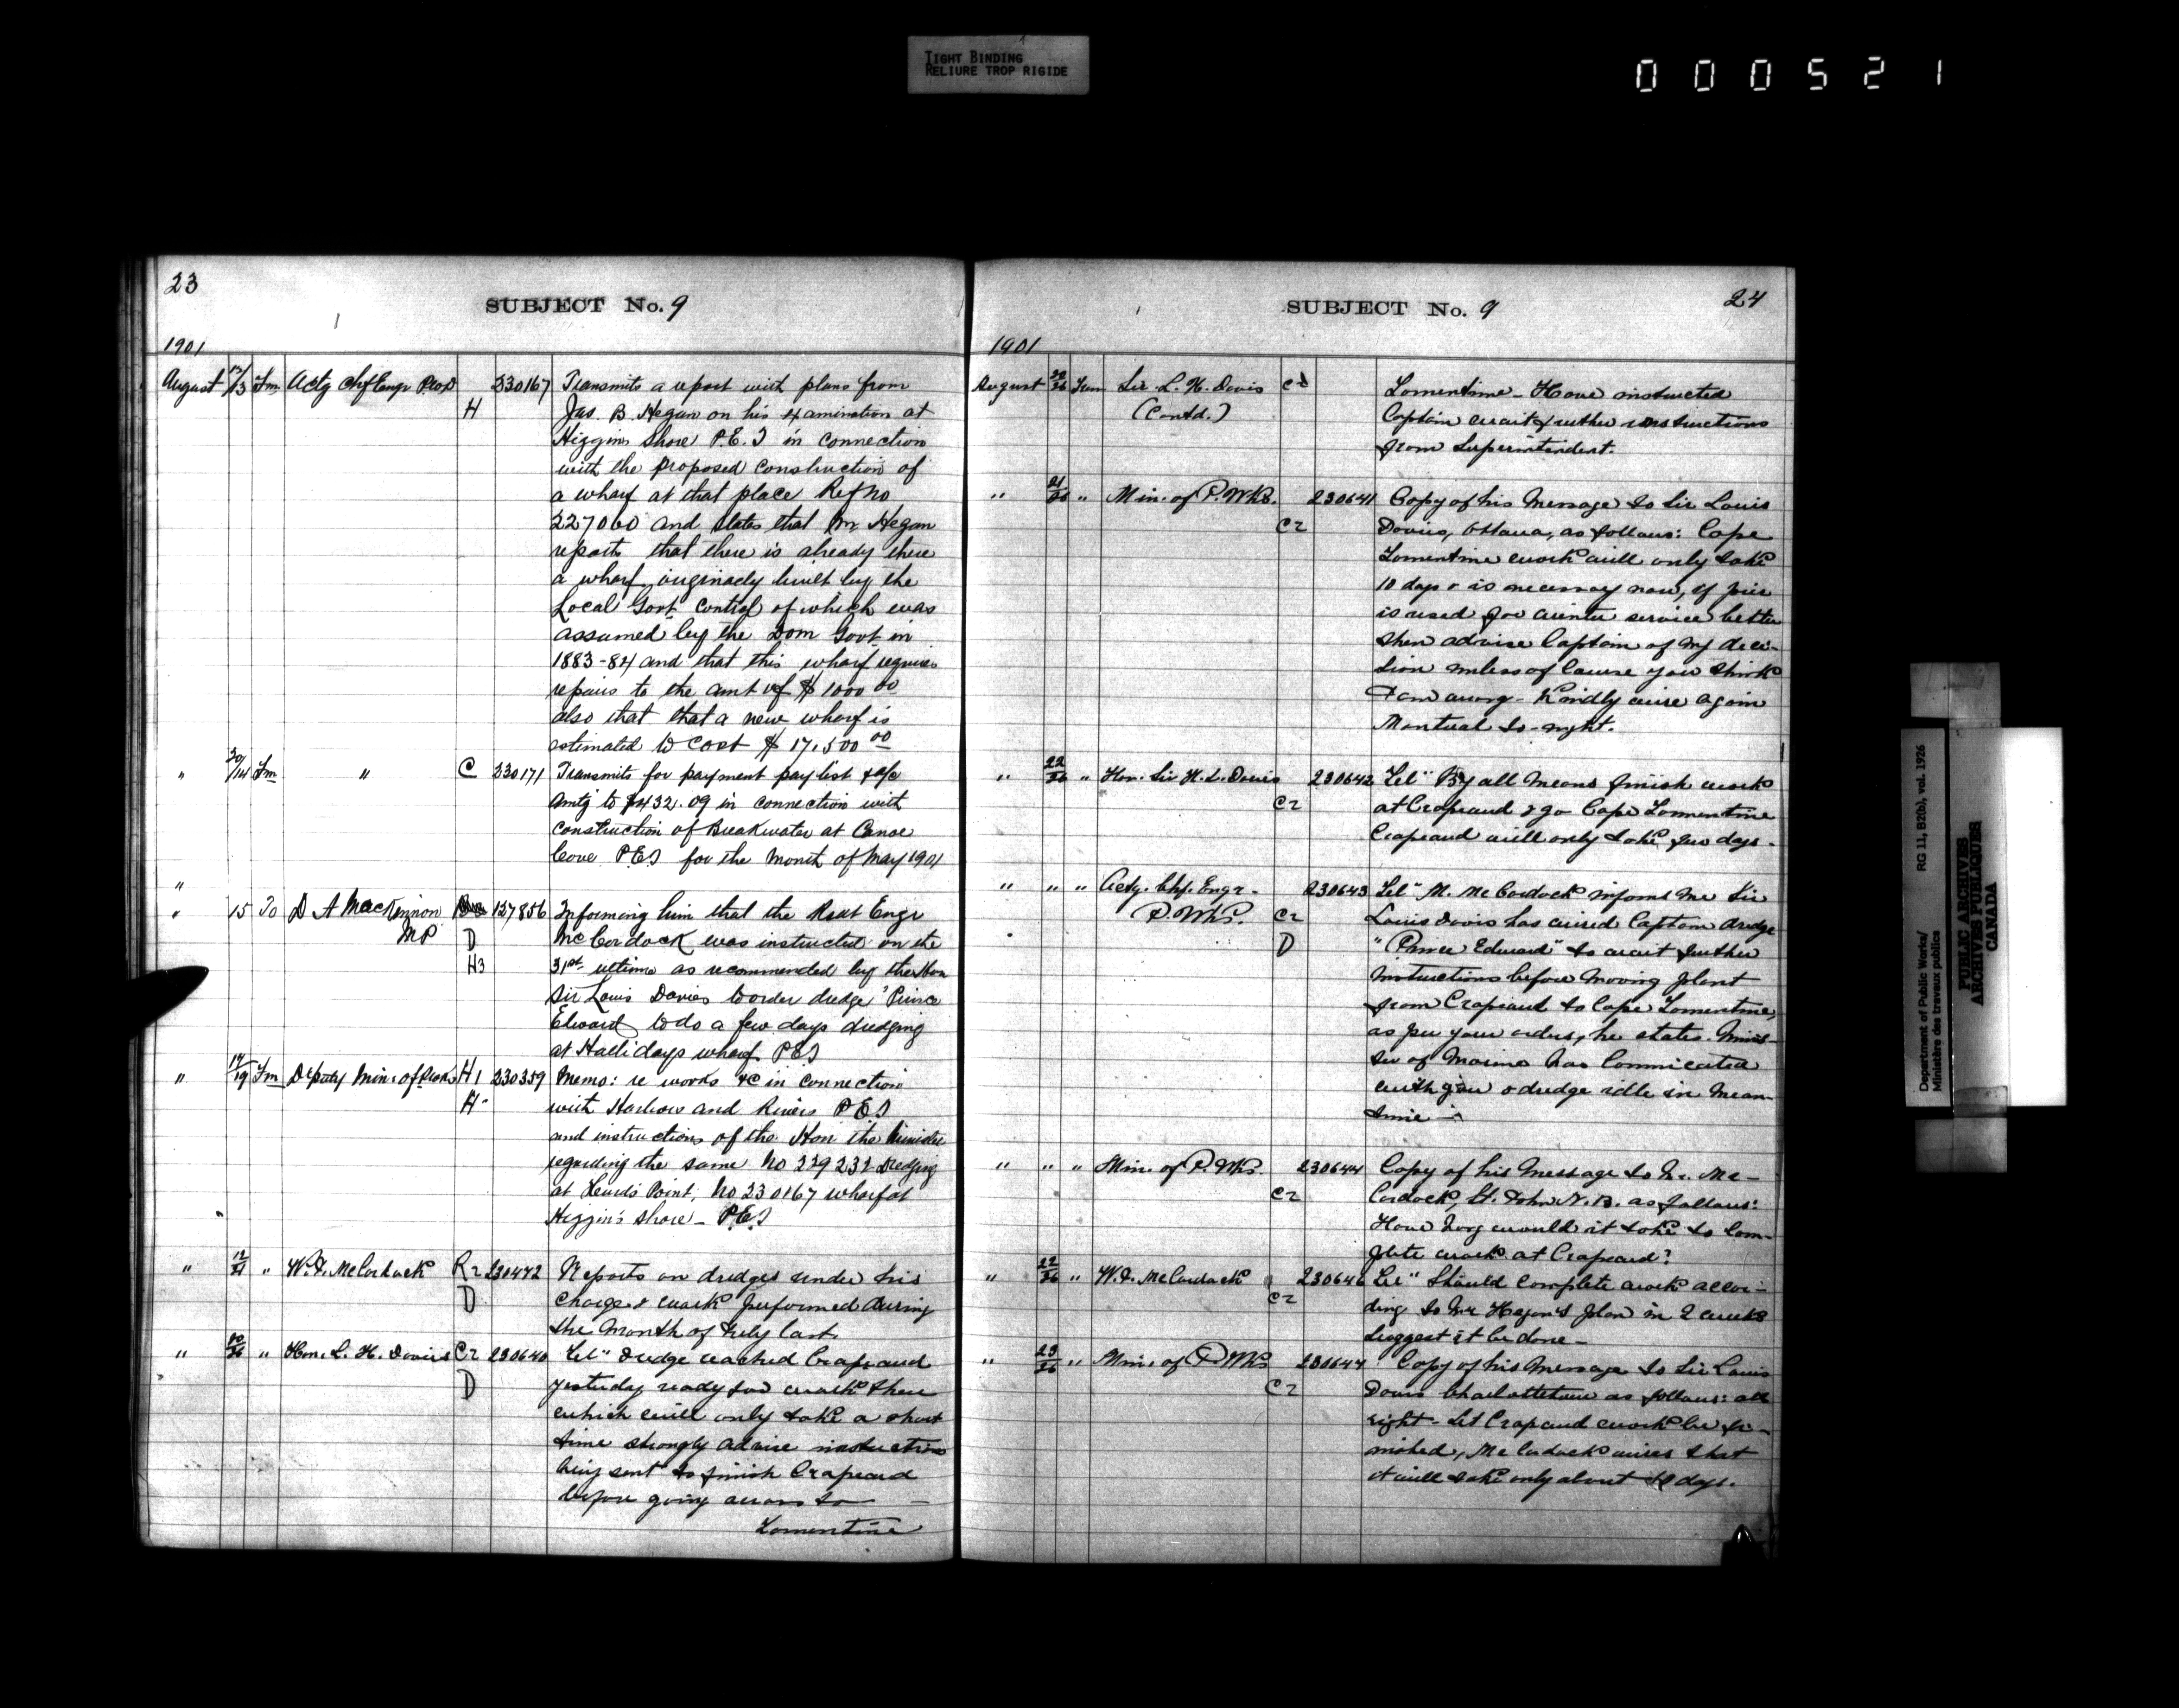 TIGHT BINDING
RELIURE TROP RIGIDE
000521
23
SUBJECT No. 9
1901
August 12/13 Fm Actg Chf Engr P.W.D 230167 Transmits a report with plans from
H Jas. B. Hegan on his examination at
Higgins Shore P.E.I in connection
with the proposed construction of
a wharf at that place Ref no
227060 and states that Mr Hegan
reports that there is already there
a wharf originaly built by the
Local Govt Control of which was
assumed by the Dom Govt in
1883-84 and that this wharf requires
repairs to the amt of $ 1000 00
also that that a new wharf is
estimated to cost $ 17,500 00
" /14 Fm " C 230171 Transmits for payment pay list & a/c
amtg to $432.09 in connection with
construction of Breakwater at Canoe
Cove P.E.I for the month of May 1901
"
" 15 To D A MacKinnon 127856 Informing him that the Resdt Engr
MP D McCordock was instructed on the
H3 31st ultimo as recommended by the Hon
Sir Louis Davies to order dredge "Prince
Edward" to do a few days dredging
at Hallidays wharf P.E.I
" 14/19 Fm Deputy Min: of Works H1 230359 Memo: re works &c in connection
H" with Harbors and Rivers P.E.I
and instructions of the Hon the Minister
regarding the same No 229232 Dredging
at Lewis Point, No 230167 wharf at
Higgin's Shore - P.E.I
" 12/21 " W.F. McCordock R2 230472 Reports on dredges under his
D charge & work performed during
the Month of July last.
" 20/26 " Hon. L. H. Davies C2 230640 Tel" Dredge reached Crapaud
D yesterday ready for work there
which will only take a short
time strongly advise instructions
being sent to finish Crapaud
before going across to
Tormentine
SUBJECT No. 9
24
1901
August 20/26 From Sir L. H. Davis C2 Tormentine - Have instructed
(Contd.) Captain await further instructions
from Superintendent.
" 21/26 " Min. of P. Wks. 230641 Copy of his Message to Sir Louis
C2 Davies, Ottawa, as follows: Cape
Tormentine work will only take
10 days & is necessary now, if pier
is used for winter service better
then advise Captain of my deci-
sion unless of course you think
I am wrong - Kindly wire again
Montreal to-night.
" 22/26 " Hon. Sir H. L. Davis 230642 Tel" By all means finish work
C2 at Crapaud & go Cape Tormentine
Crapaud will only take few days.
" " " Actg. Chf. Engr. 230643 Tel" M. McCordock informs me Sir
P. Wks. C2 Louis Davis has wired Captain dredge
D "Prince Edward" to await further
instructions before moving plant
from Crapaud to Cape Tormentine,
as per your orders, he states Minis-
ter of Marine has Commicated
with you & dredge idle in mean-
time -
" " " Min. of P. Wks. 230644 Copy of his Message to Mr. Mc-
C2 Cordock, St. John N.B. as follows:
How long would it take to com-
plete work at Crapaud?
" 22/26 " W.F. McCordock 230646 Tel" Should complete work accor-
C2 ding to Mr Hegan's plan in 2 weeks
Suggest it be done -
" 23/26 " Min. of P. Wks 230647 Copy of his Message to Sir Louis
C2 Davis Charlottetown as follows: all
right - Let Crapaud work be fi-
nished, McCordock wires that
it will take only about 10 days.
Department of Public Works/ RG 11, B2(b), vol. 1926
Ministère des travaux publics
PUBLIC ARCHIVES
ARCHIVES PUBLIQUES
CANADA